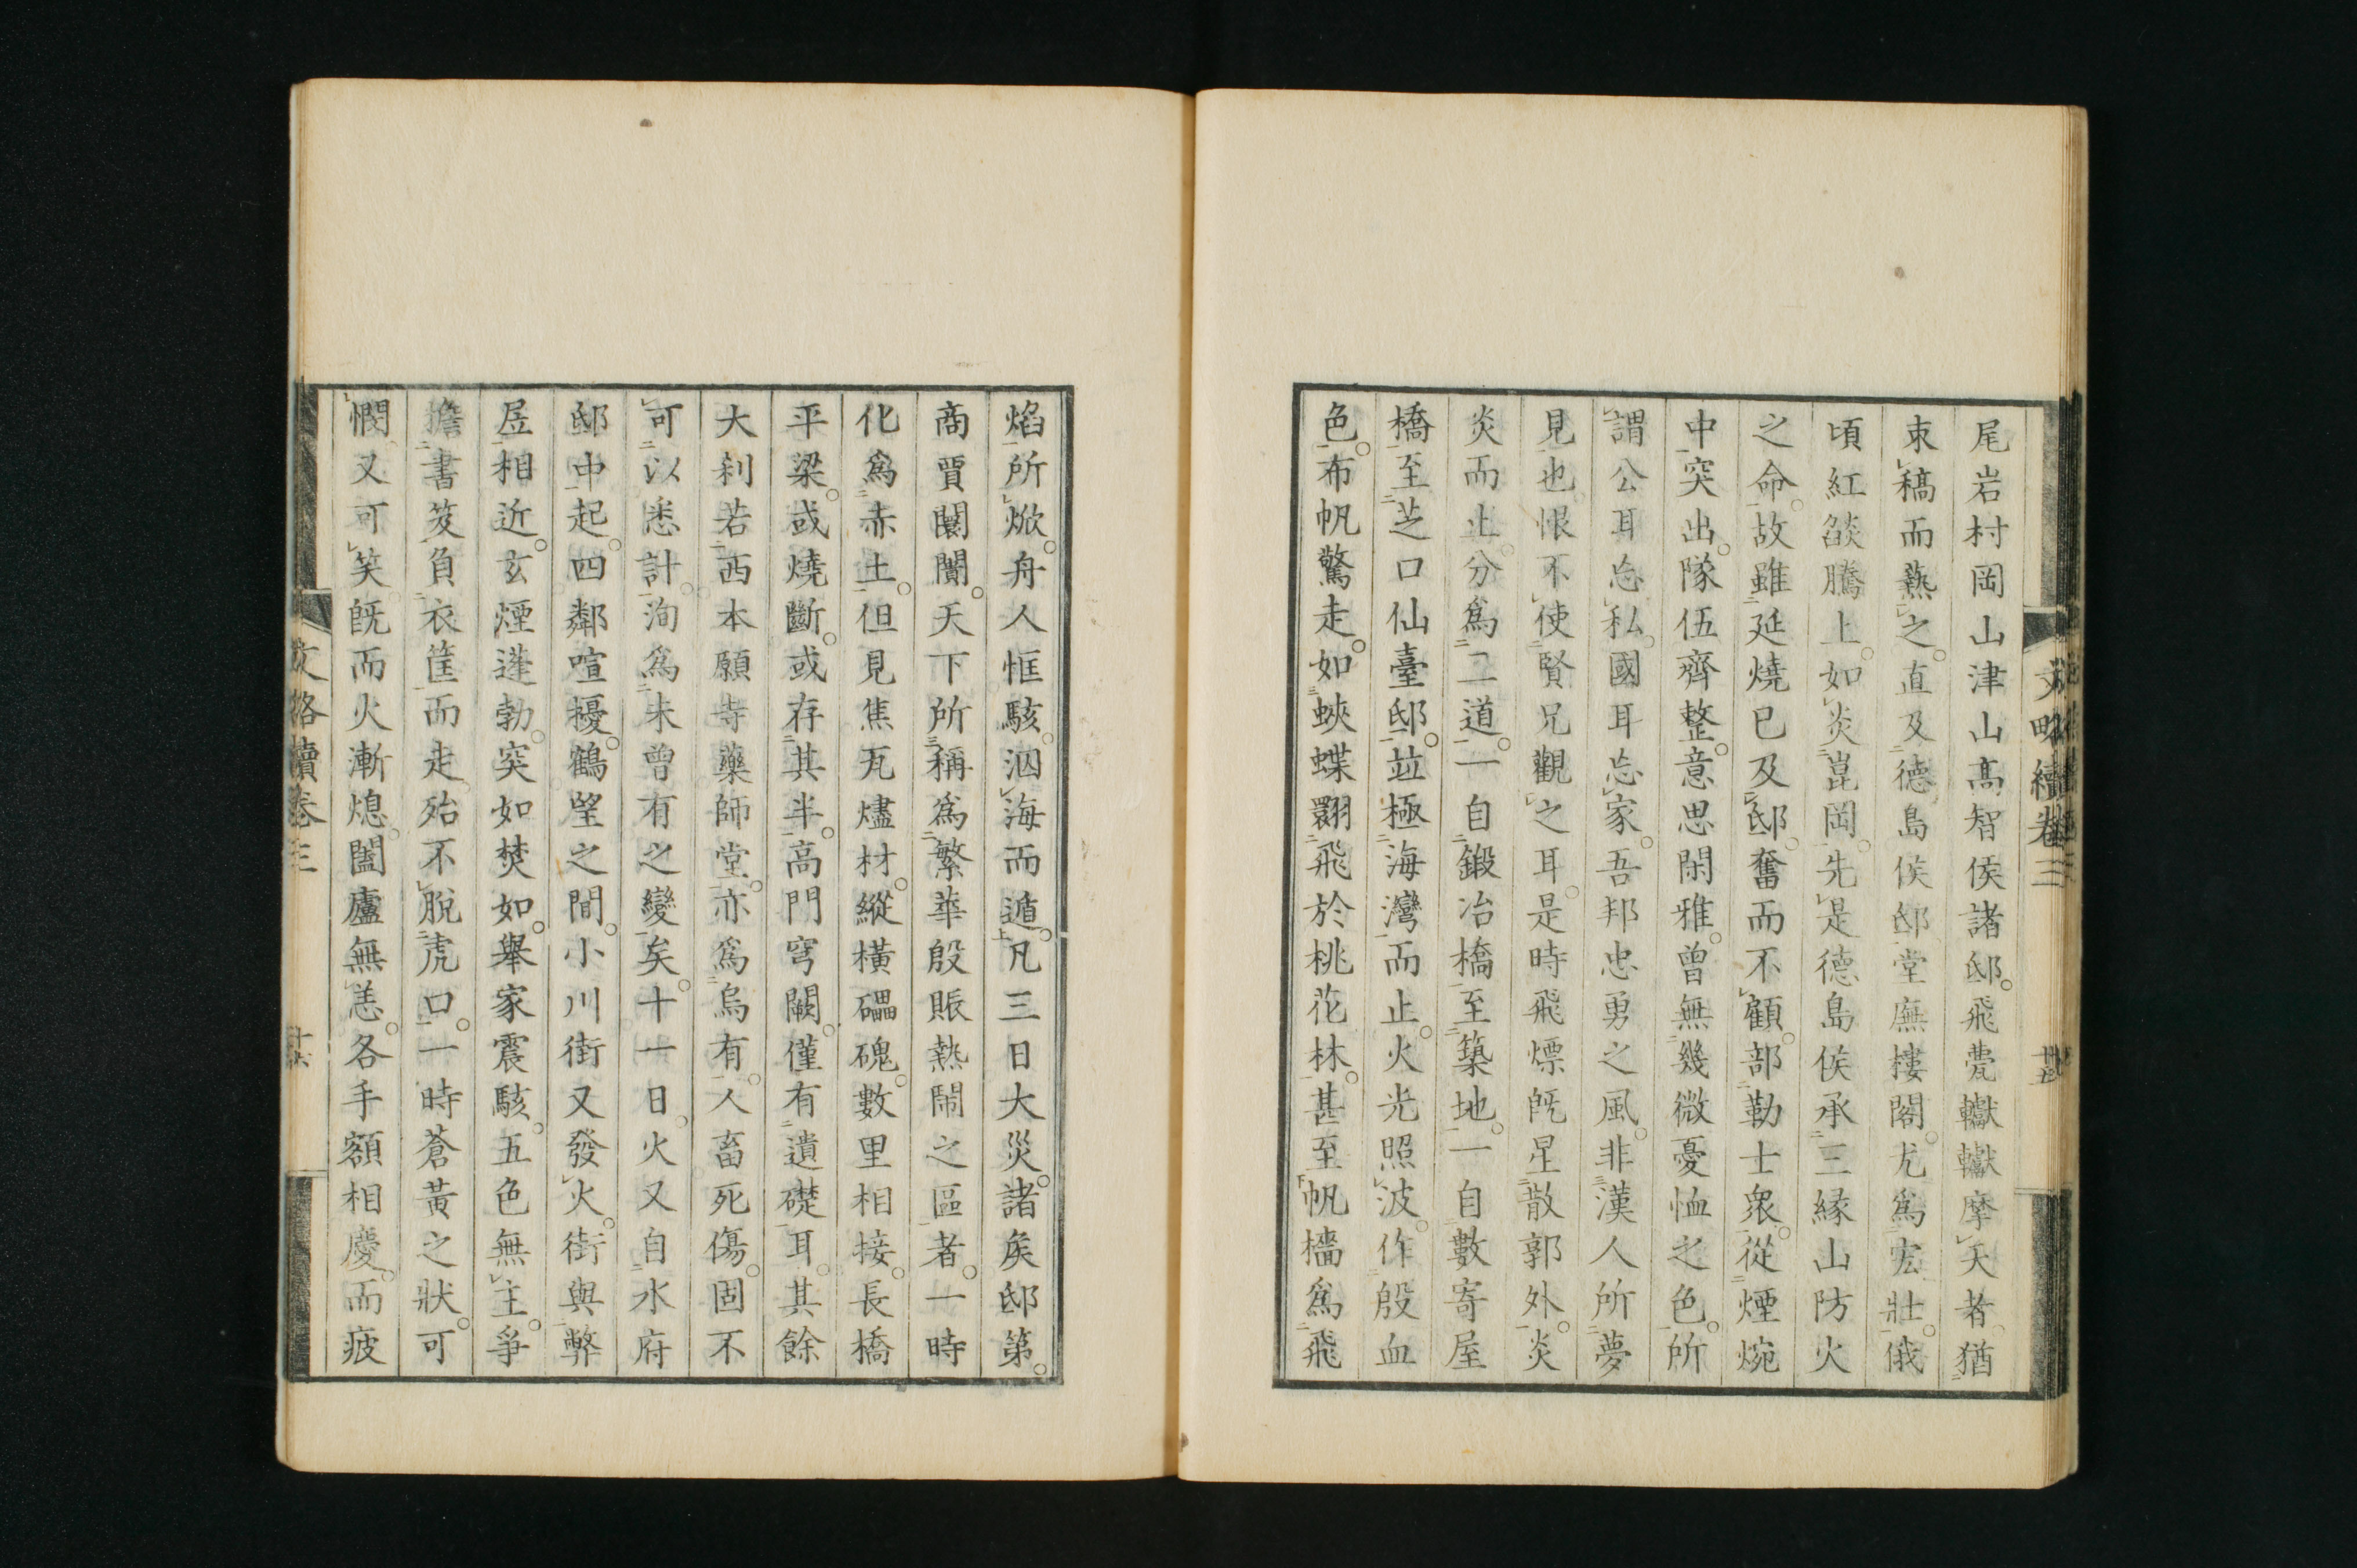 尾岩村岡山津山高智侯諸邸。飛甍轞轞摩天者。猶
束稿而爇之。直及德島侯邸。堂廡樓閣。尤爲宏壯。俄
頃紅燄騰上。如炎崑岡。先是德島侯承三緣山防火
之命。故雖延燒已及邸。奮而不顧。部勒士衆。從煙焥
中突出。隊伍齊整。意思閑雅。曾無幾微憂恤之色。所
謂公耳忘私。國耳忘家。吾邦忠勇之風。非漢人所夢
見也。恨不使賢兄觀之耳。是時飛熛旣星散郭外。炎
炎而止。分爲二道。一自鍛冶橋至築地。一自數寄屋
橋至芝口仙臺邸。竝極海灣而止。火光照波。作殷血
色。布帆驚走。如蛺蝶翾飛於桃花林。甚至帆檣爲飛
文略續卷三
焰所焮。舟人恇駭。泅海而遁。凡三日大災。諸矦邸第。
商賈闤闠。天下所稱爲繁華殷賑熱鬧之區者。一時
化爲赤土。但見焦瓦燼材。縱橫礧磈。數里相接。長橋
平梁。或燒斷。或存其半。高門穹闕。僅有遺礎耳。其餘
大刹若西本願寺藥師堂。亦爲烏有。人畜死傷。固不
可以悉計。洵爲未曾有之變矣。十一日。火又自水府
邸中起。四鄰喧擾。鶴望之間。小川街又發火。街與弊
居相近。玄煙蓬勃。突如焚如。擧家震駭。五色無主。爭
擔書笈負衣筐而走。殆不脫虎口。一時蒼黃之狀。可
憫又可笑。旣而火漸熄。闔廬無恙。各手額相慶。而疲
文略續卷三
十六